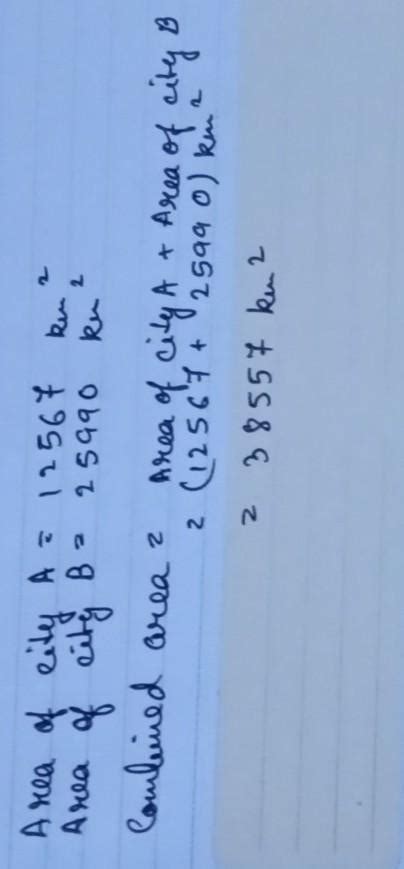 Area of city A = 12567 km²
Area of city B = 25990 km²
Combined area = Area of city A + Area of city B
= (12567 + 25990) km²
= 38557 km²